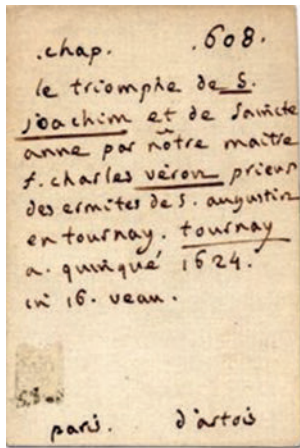 .chap. .608.
le triomphe de S.
joachim et de saincte
anne par nôtre maitre
f. charles véron prieur
des ermites de S. augustin
en tournay. tournay
a. quinqué 1624.
in 16. veau.
paris. d'artois